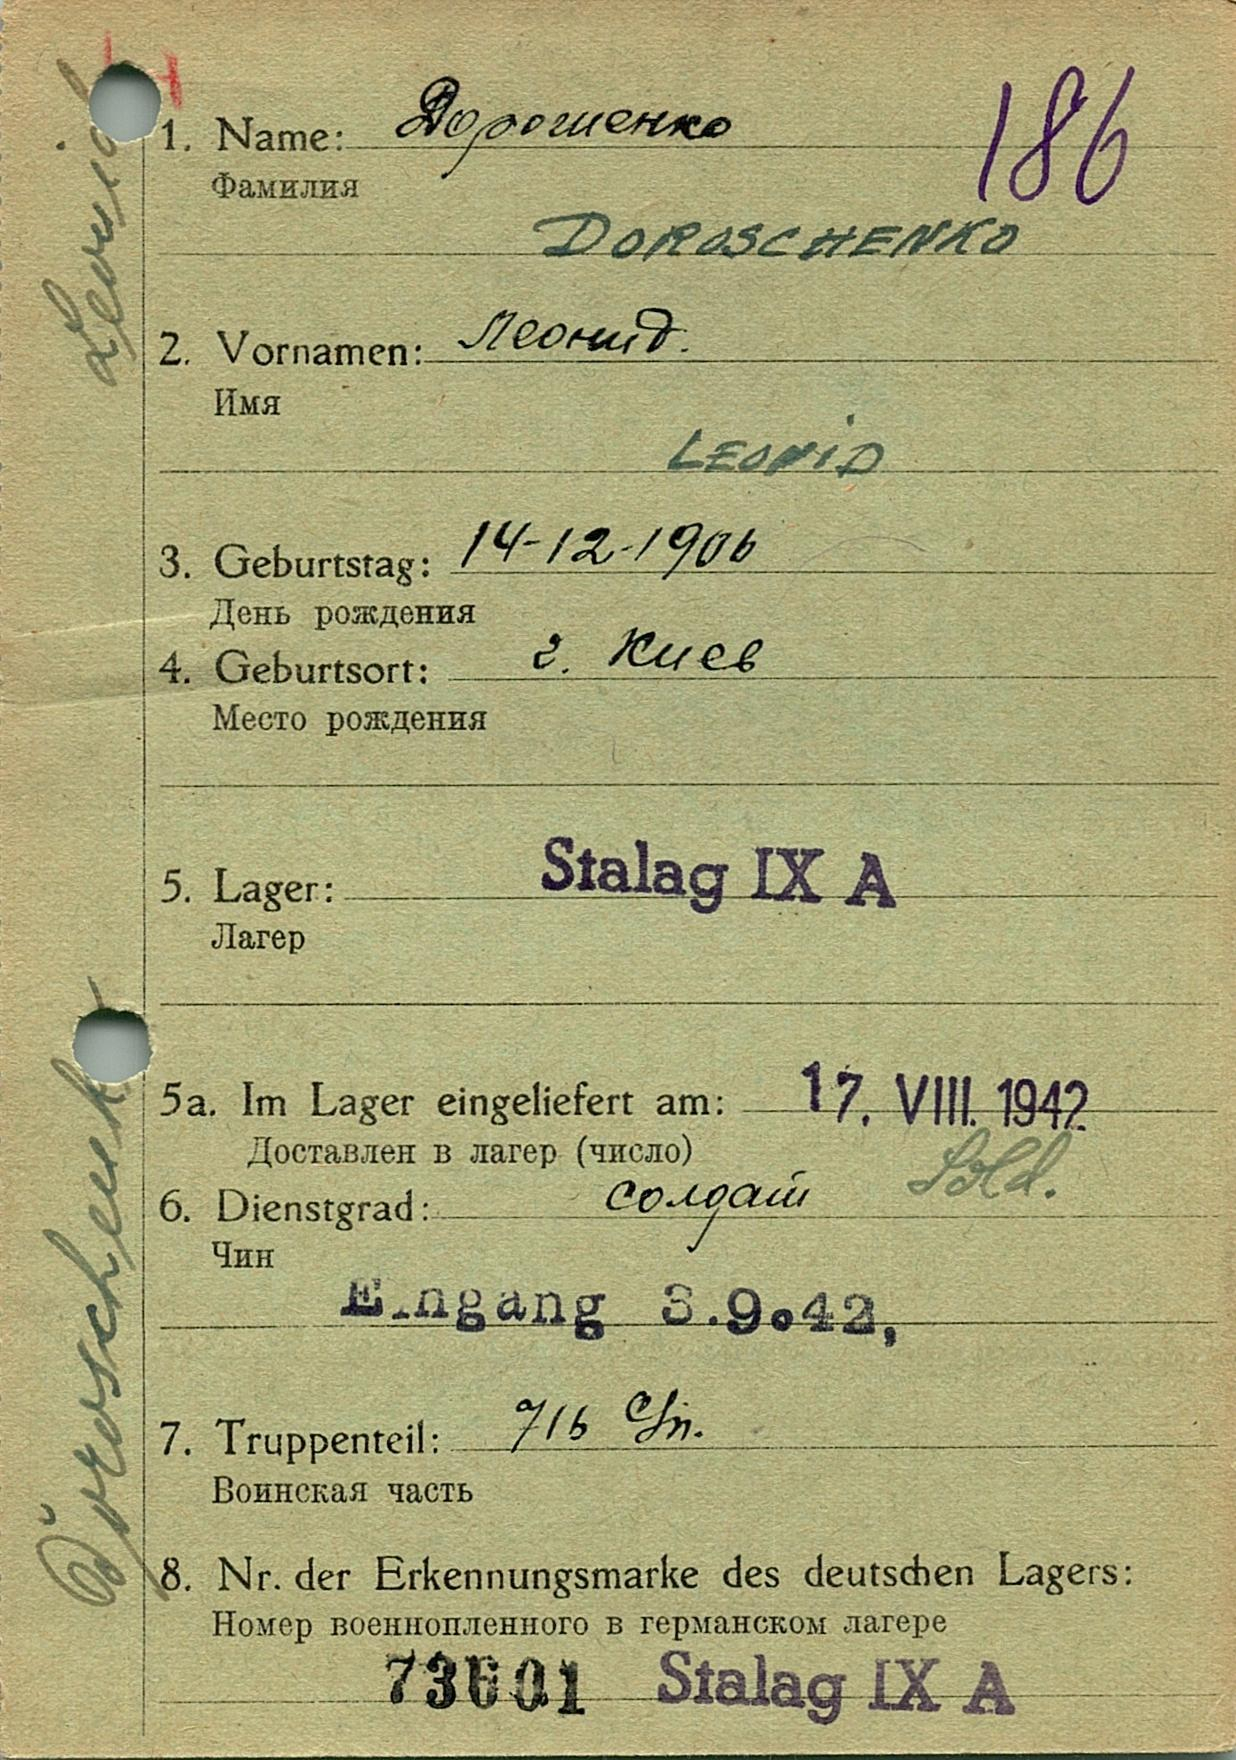 1. Name: Дорошенко
186
Фамилия
DOROSCHENKO
2. Vornamen: Леонид.
Имя
LEONID
3. Geburtstag: 14-12-1906
День рождения
4. Geburtsort: г. Киев
Место рождения
5. Lager: Stalag IX A
Лагер
5a. Im Lager eingeliefert am: 17. VIII. 1942
Доставлен в лагер (число)
Sold.
6. Dienstgrad: солдат
Чин
Eingang 3.9.42,
7. Truppenteil: 716
Воинская часть
8. Nr. der Erkennungsmarke des deutschen Lagers:
Номер военнопленного в германском лагере
73601 Stalag IX A
Doroschenko Leonid